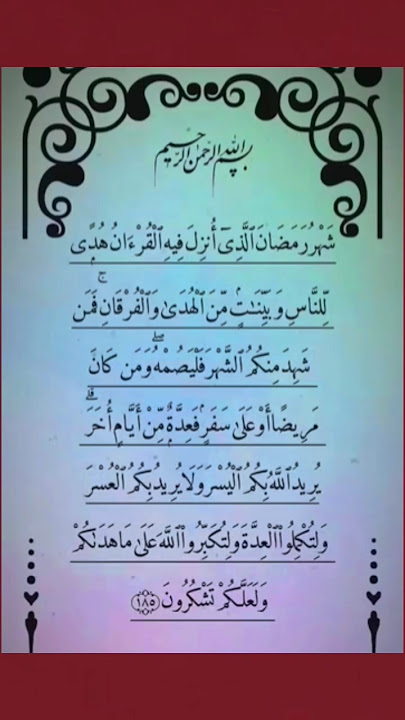 بسم الله الرحمن الرحيم
شَهْرُ رَمَضَانَ ٱلَّذِىٓ أُنزِلَ فِيهِ ٱلْقُرْءَانُ هُدًى
لِّلنَّاسِ وَبَيِّنَٰتٍ مِّنَ ٱلْهُدَىٰ وَٱلْفُرْقَانِ ۚ فَمَن
شَهِدَ مِنكُمُ ٱلشَّهْرَ فَلْيَصُمْهُ ۖ وَمَن كَانَ
مَرِيضًا أَوْ عَلَىٰ سَفَرٍ فَعِدَّةٌ مِّنْ أَيَّامٍ أُخَرَ ۗ
يُرِيدُ ٱللَّهُ بِكُمُ ٱلْيُسْرَ وَلَا يُرِيدُ بِكُمُ ٱلْعُسْرَ
وَلِتُكْمِلُوا۟ ٱلْعِدَّةَ وَلِتُكَبِّرُوا۟ ٱللَّهَ عَلَىٰ مَا هَدَىٰكُمْ
وَلَعَلَّكُمْ تَشْكُرُونَ ١٨٥